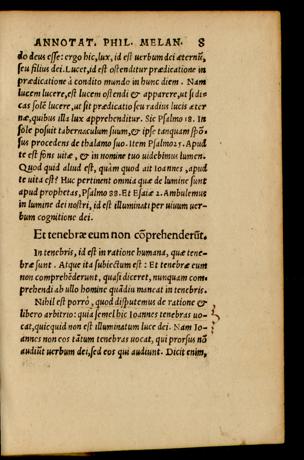 ANNOTAT. PHIL. MELAN. 8
do deus esse: ergo hic, lux, id est uerbum dei æternū,
seu filius dei. Lucet, id est ostenditur prædicatione in
prædicatione à condito mundo in hunc diem. Nam
lucem lucere, est lucem ostendi & apparere, ut si di-
cas solē lucere, ut sit prædicatio seu radius lucis æter
næ, quibus illa lux apprehenditur. Sic Psalmo 18. In
sole posuit tabernaculum suum, & ipse tanquam spō-
sus procedens de thalamo suo. Item Psalmo 25. Apud
te est fons uitæ, & in nomine tuo uidebimus lumen.
Quod quid aliud est, quàm quod ait Ioannes, apud
te uita est? Huc pertinent omnia quæ de lumine sunt
apud prophetas, Psalmo 88. Et Esaiæ 2. Ambulemus
in lumine dei nostri, id est illuminati per uiuum uer-
bum cognitione dei.
Et tenebræ eum non cōprehenderūt.
In tenebris, id est in ratione humana, quæ tene-
bræ sunt. Atque ita subiectum est: Et tenebræ eum
non comprehēderunt, quasi diceret, nunquam com-
prehendi ab ullo homine quādiu maneat in tenebris.
Nihil est porrò, quod disputemus de ratione &
libero arbitrio: quia semel hic Ioannes tenebras uo-
cat, quicquid non est illuminatum luce dei. Nam Io-
annes non eos tātum tenebras uocat, qui prorsus nō
audiūt uerbum dei, sed eos qui audiunt. Dicit enim,